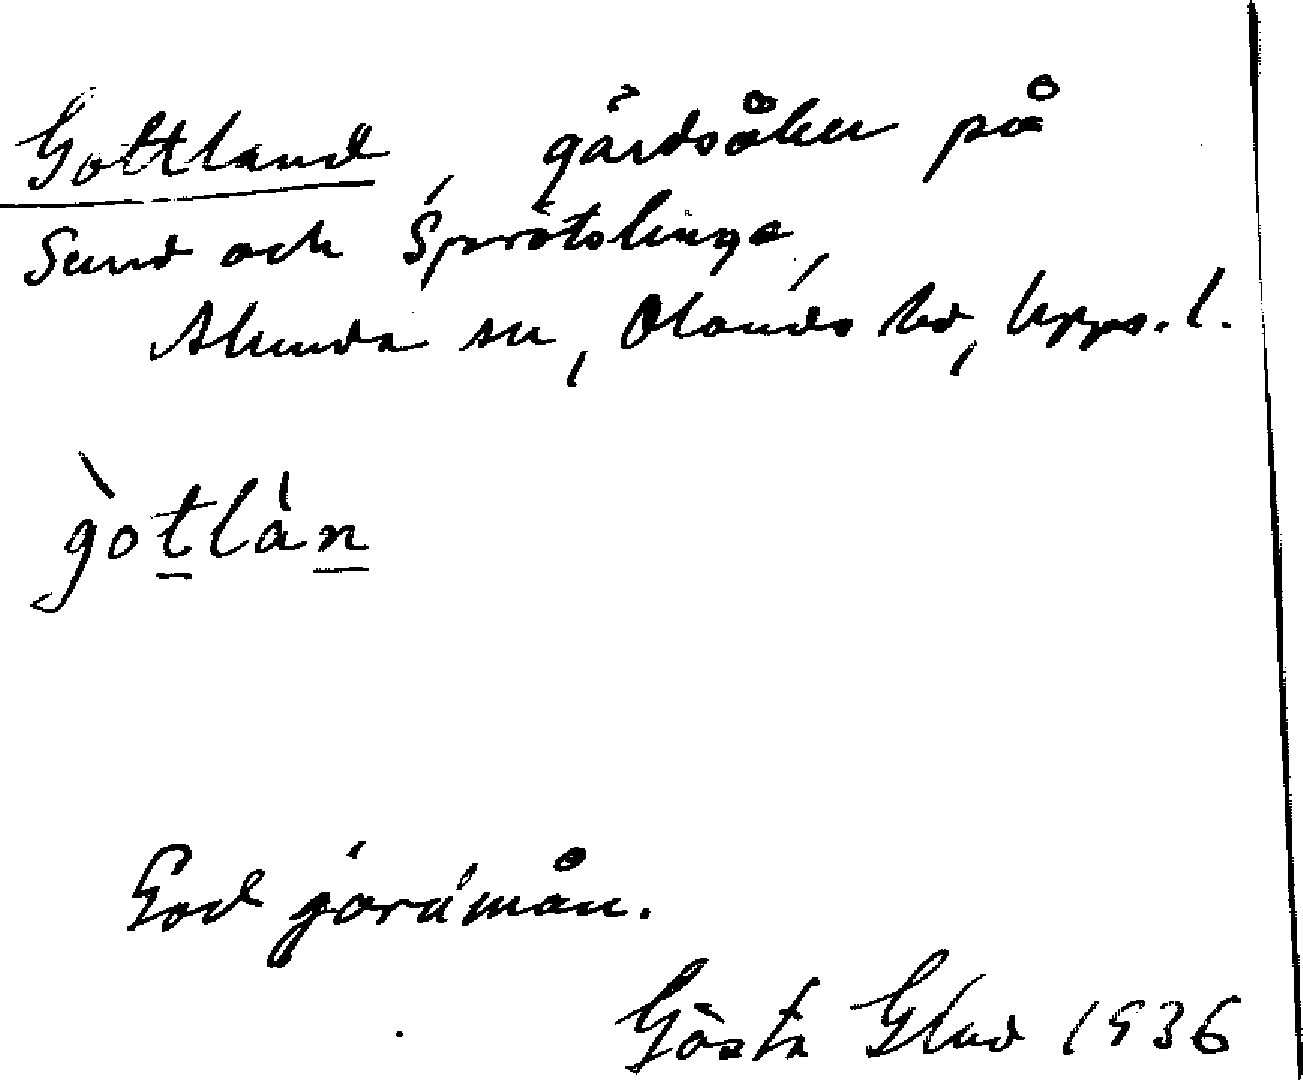 Gottland, gärdsåker på
Sund och Sprötslinge,
Alunda sn, Olands hd, Upps. l.
gòtlàn
God jordmån.
Gösta Glad 1936